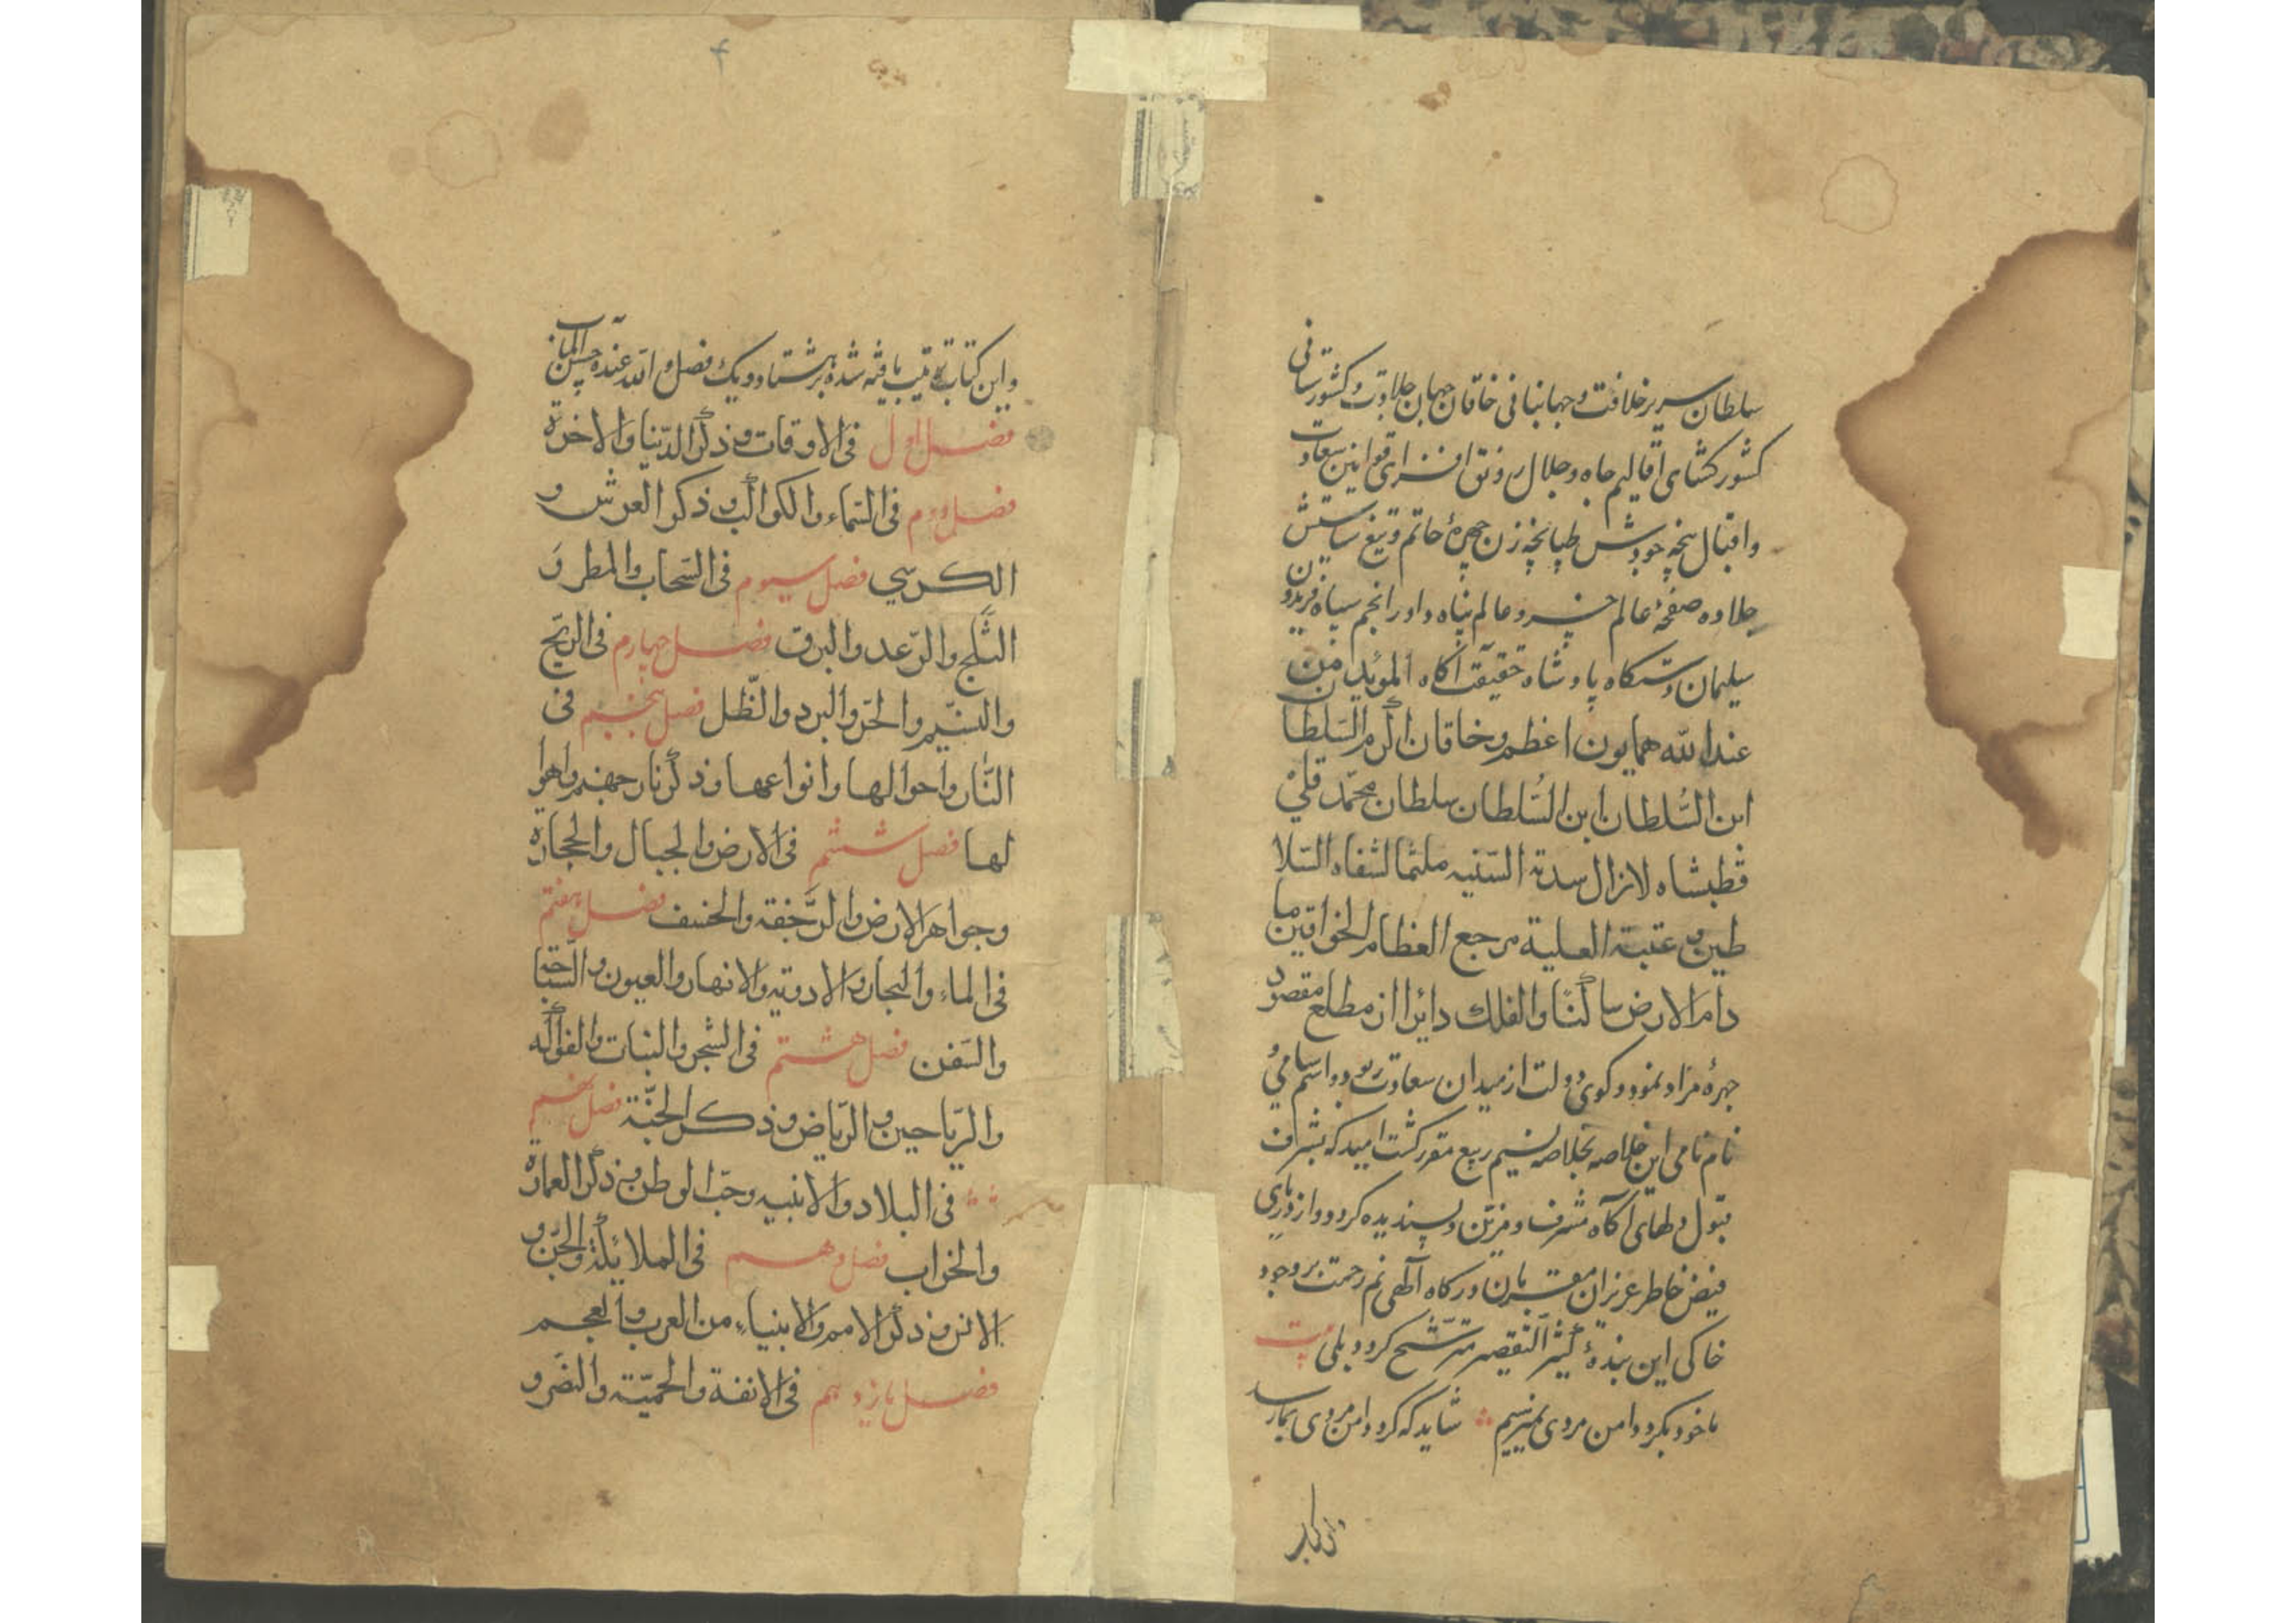 سلطان سریر خلافت و جهانبانی خاقان جهان جلاوت و کشورستانی
کشور کشای اقالیم جاه و جلال رونق افزای قوانین سعادت
واقبال پنجه جودش طپانچه زن چهرهٔ حاتم وتیغ سیاستش
جلاوه صفحهٔ عالم خسرو عالم پناه داور انجم سپاه فریدون
سلیمان دستکاه پادشاه حقیقت آکاه المؤید من
عندالله همایون اعظم وخاقان اکرم السلطان
ابن السُّلطان ابن السُّلطان سلطان محمّد قلی
قطبشاه لازال سدته السّنیه ملثما لشفاه السّلا
طین و عتبته العلیة مرجع العظام الخواقین ما
دام الارض ساکنًا والفلك دائرا از مطلع مقصود
چهرهٔ مراد نمود و کوی دولت از میدان سعادت ربود و اسم سامیُ
نام نامی این خلاصه بخلاصه نسیم ربیع مقرر کشت امید که بشرف
قبول دلهای آکاه مشرف و مزیّن و پسندیده کردد و از
فیض خاطر عزیزان مقربان درکاه آلهی نم رحمت بر وجود
خاکی این بندهٔ کثیر التقصیر مترشّح کردد بلی بیت
باخود بکرد دامن مردی نمیرسیم شاید که کرد دامن مردی بمارسد
و این کتاب ترتیب یافته شده بر هشتاد و یك فصل و الله عنده حسن المآب
فصل اول فی الاوقات و ذکر الدّنیا والاخرة
فصل دوم فی السّماء والکواکب و ذکر العرش و
الکرسي فصل سیوم فی السّحاب والمطر وَ
الثّلج والرّعد والبرق فصل چهارم فی الریح
والنسیم والحرّ والبرد والظّل فصل پنجم فی
النّار واحوالها وانواعها وذکر نار جهنم واهوا
لها فصل ششم فی الارض والجبال والحجارة
وجواهر الارض والرَّجفة والخسف فصل هفتم
فی الماء والبحار والاودیة والانهار والعیون و السّباحة
والسّفن فصل هشتم فی الشجر والنبات والفواکه
والریّاحین و الریّاض و ذکر الجنّة فصل نهم
فی البلاد والابنیه وحبّ الوطن و ذکر العمارة
والخراب فصل دهم فی الملائکة والجنّ و
الانس و ذکر الامم والانبیاء من العرب والعجم
فصل یازدهم فی الانفة والحمیّة والنضر و